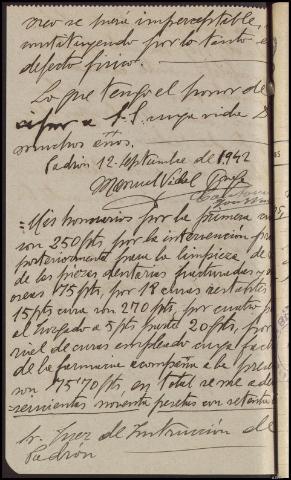 creo se hará imperceptible,
constituyendo por lo tanto
defecto físico.
Lo que tengo el honor de
a S.S. cuya vida D
muchos años.
Padrón 12 Septiembre de 1942
Manuel Vidal
= Mis honorarios por la primera
son 250 pts, por la intervención
posteriormente para la limpieza, de
de las piezas dentarias fracturadas y
oseas 75 pts, por 18 curas restantes
15 pts cura son 270 pts por cuatro
al Juzgado a 5 pts 20 pts, por
de curas empleado cuya fact
de la farmacia acompaña a la
son 75'70 pts, en total se me ade
seiscientas noventa pesetas con setenta
Sr. Juez de Instrucción de
Padrón